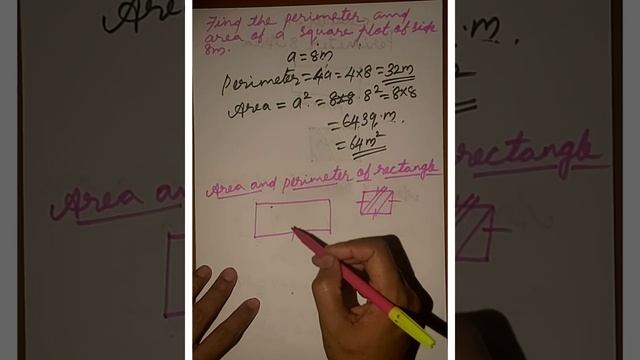 Find the perimeter and
area of a square plot of side
8m.
a = 8m
Perimeter = 4a = 4×8 = 32m
Area = a² = 8×8 8² = 8×8
= 64 sq. m.
= 64m²
Area and perimeter of rectangle